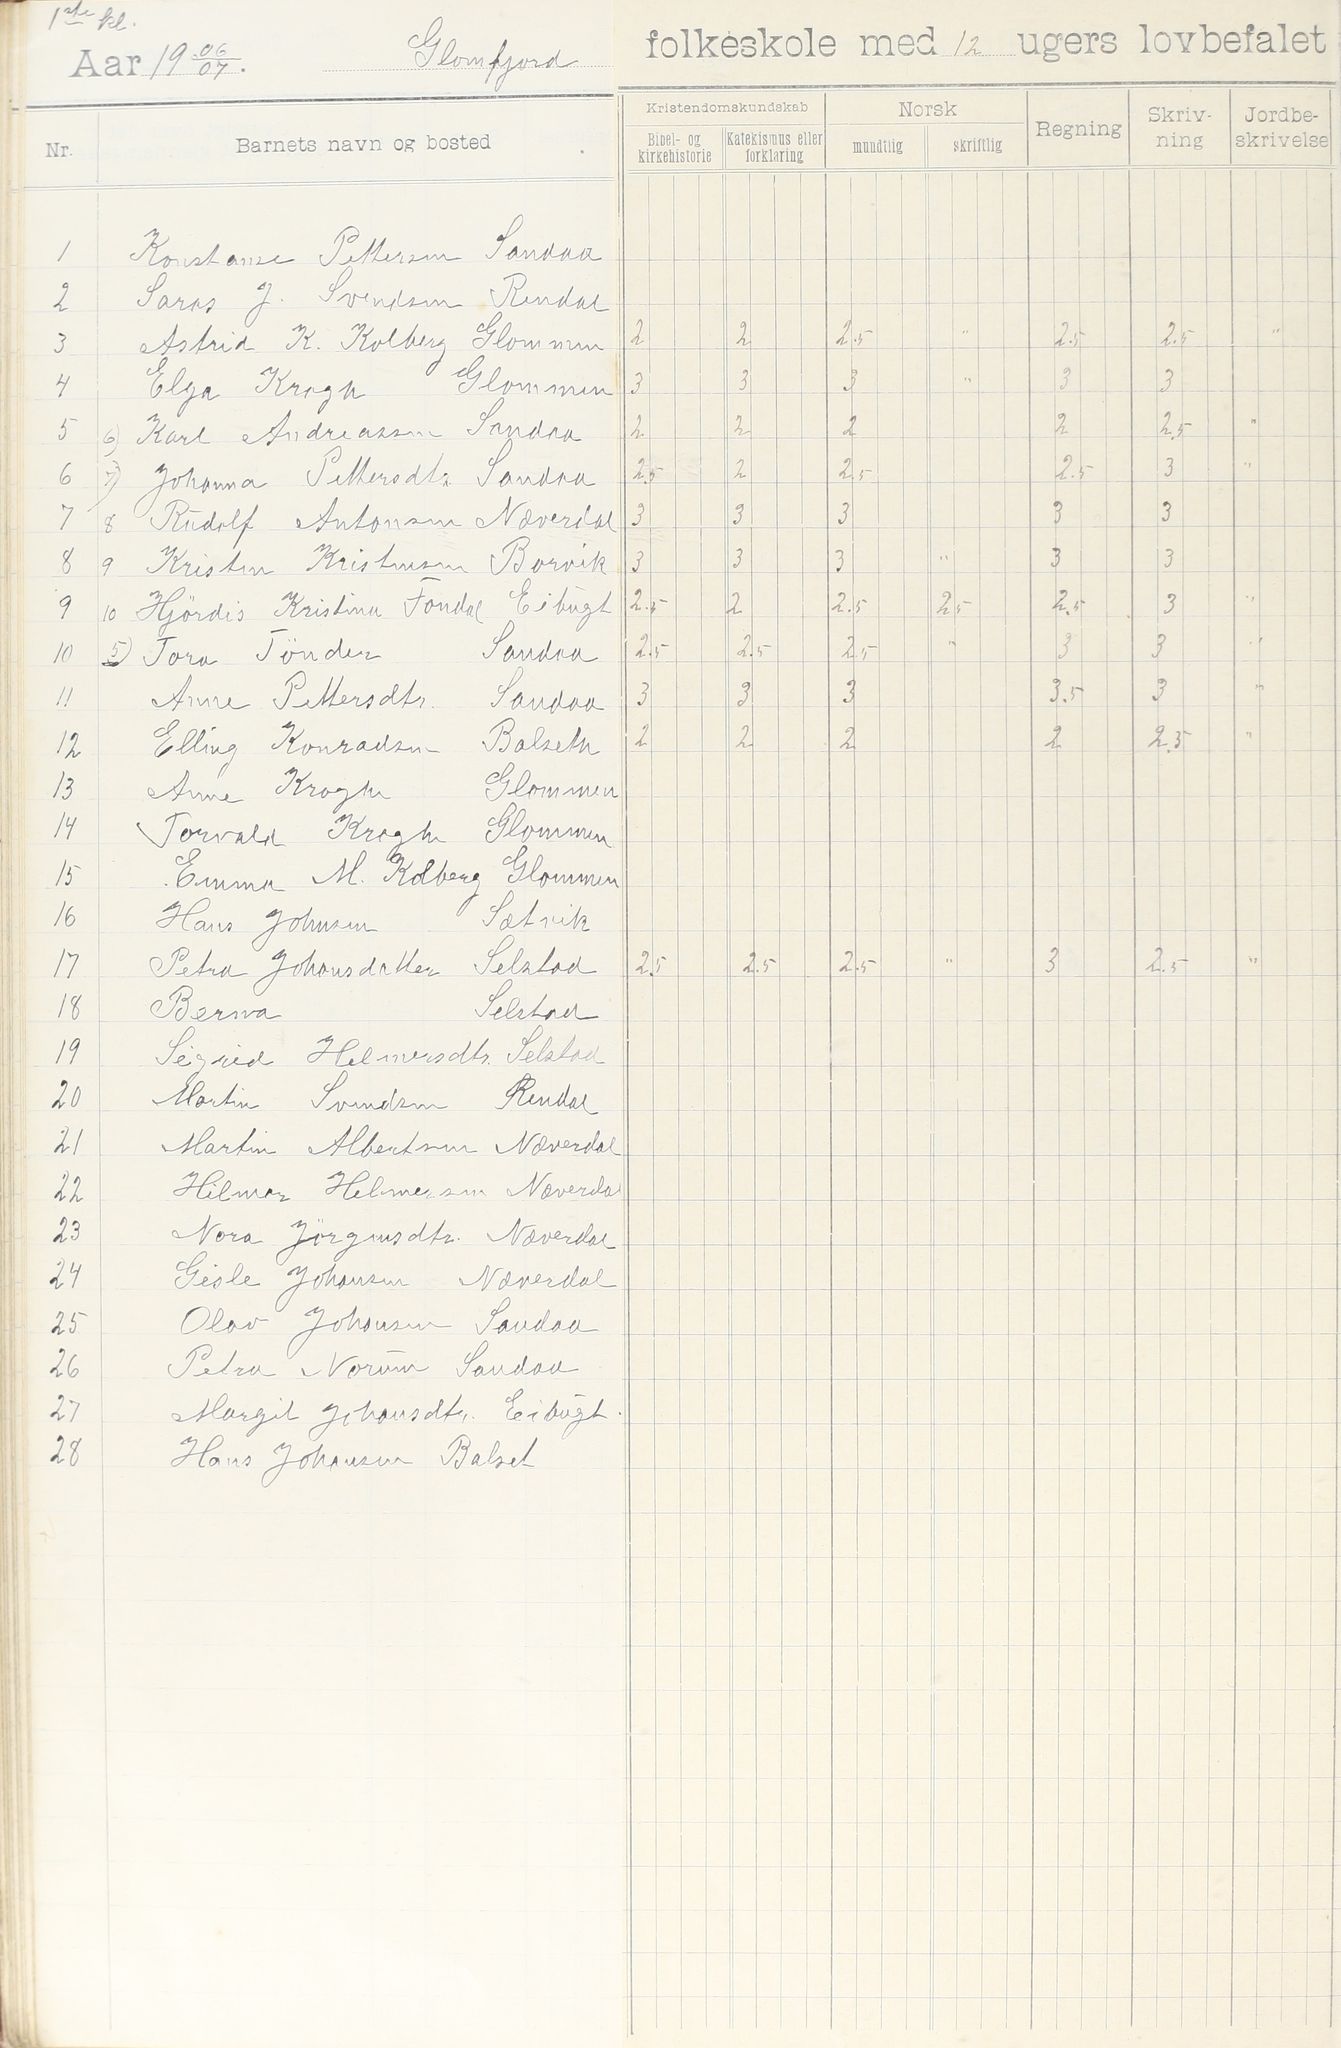 1ste kl.
Aar 19 06/07. Glomfjord folkeskole med 12 ugers lovbefalet
Nr. Barnets navn og bosted Kristendomskundskab Norsk Regning Skriv-ning Jordbe-skrivelse
Bibel- og kirkehistorie Katekismus eller forklaring mundtlig skriftlig
1 Konstanse Pettersen Sandaa
2 Saras J. Svendsen Rendal
3 Astrid K. Kolberg Glommen 2 2 2.5 " 2.5 2.5 "
4 Elga Krogh Glommen 3 3 3 " 3 3
5 6) Karl Andreassen Sandaa 2 2 2 2 2.5 "
6 7) Johanna Pettersdtr. Sandaa 2.5 2 2.5 2.5 3 "
7 8 Rudolf Antonsen Næverdal 3 3 3 3 3
8 9 Kristen Kristensen Borvik 3 3 3 " 3 3
9 10 Hjördis Kristina Fondal Eibugt 2.5 2 2.5 2.5 2.5 3 "
10 5) Tora Tönder Sandaa 2.5 2.5 2.5 " 3 3 "
11 Anne Pettersdtr. Sandaa 3 3 3 3.5 3 "
12 Elling Konradsen Balseth 2 2 2 2 2.5 "
13 Anne Krogh Glommen
14 Torvald Krogh Glommen
15 Emma M. Kolberg Glommen
16 Hans Johnsen Sætvik
17 Petra Johansdatter Selstad 2.5 2.5 2.5 " 3 2.5 "
18 Berna Selstad
19 Seigried Helmersdtr. Selstad
20 Martin Svendsen Rendal
21 Martin Albertsen Næverdal
22 Hilmar Helmersen Næverdal
23 Nora Jörgensdtr. Næverdal
24 Gisle Johansen Næverdal
25 Olav Johansen Sandaa
26 Petra Norum Sandaa
27 Margit Johansdtr. Eibugt.
28 Hans Johansen Balset